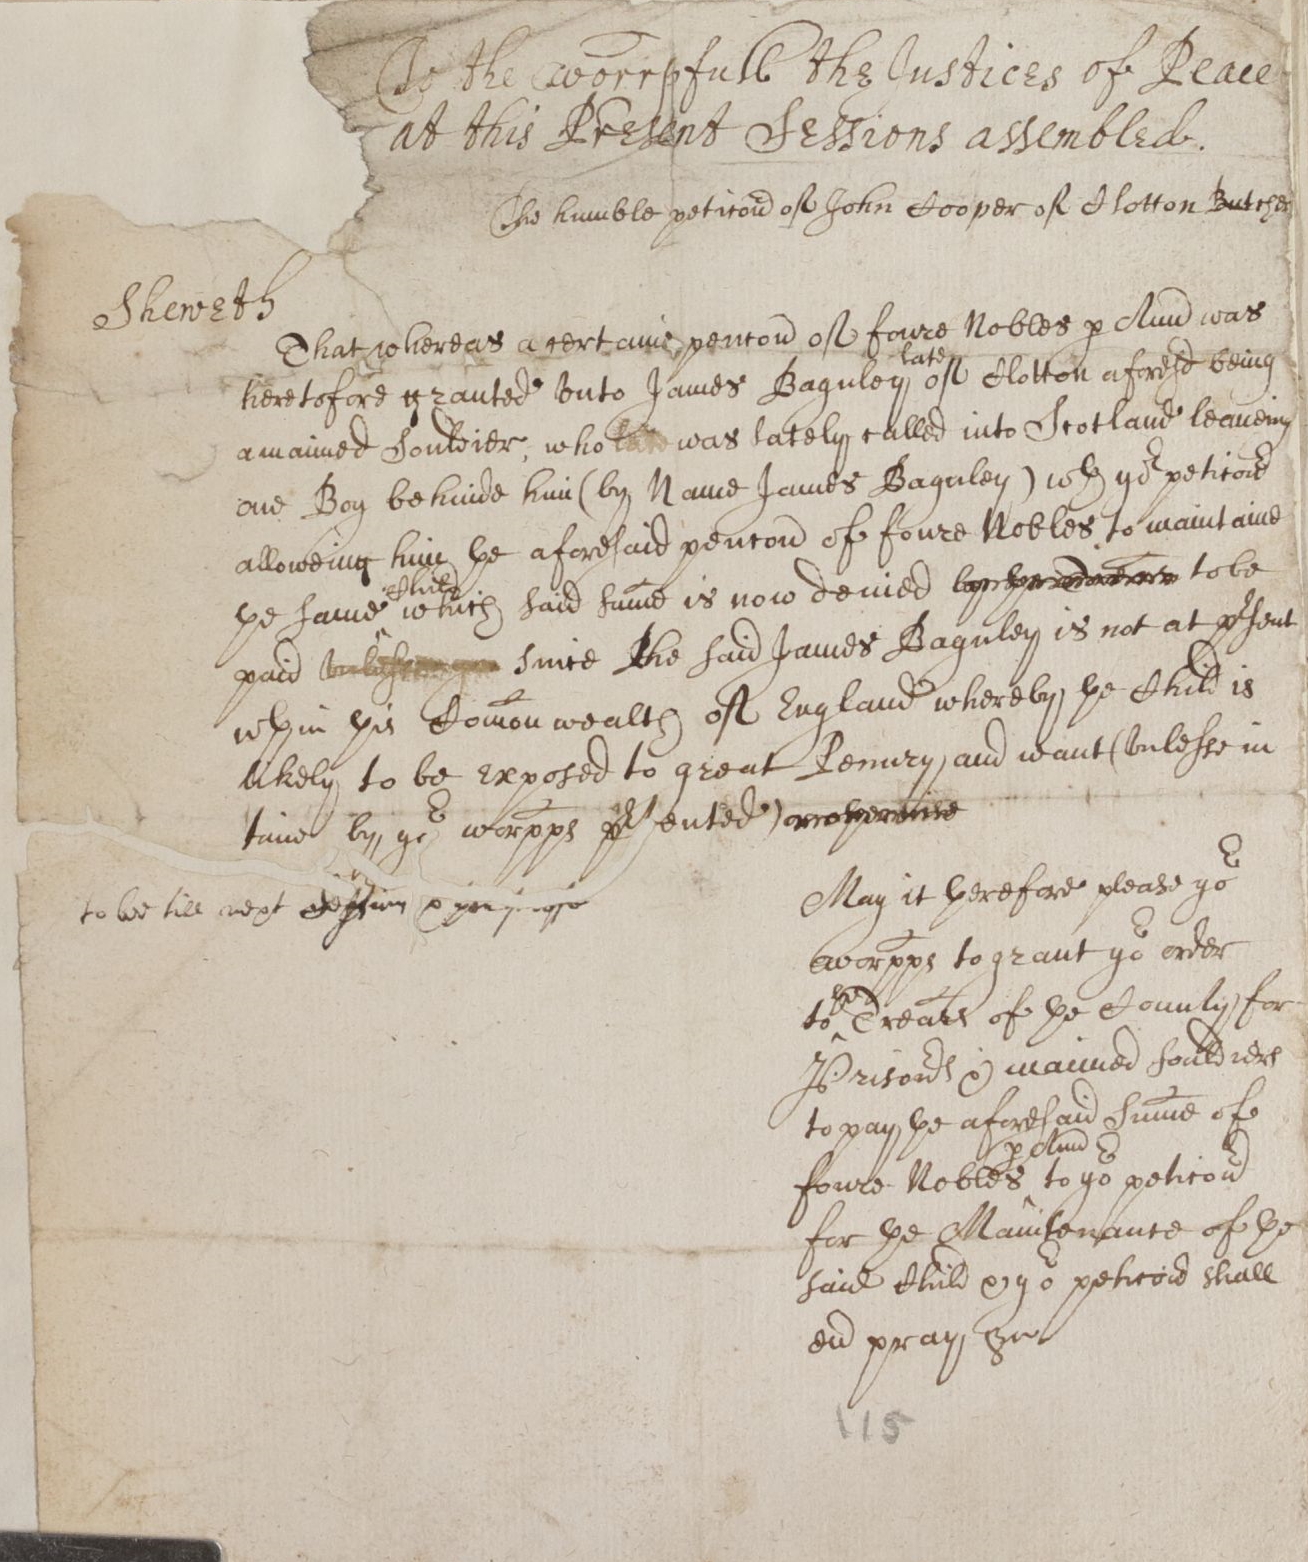 To the worrpfull the Justices of Peace
at this Present Sessions assembled.
The humble peticon of John Cooper of Clotton Butcher
Sheweth
That whereas a certaine pencon of foure Nobles p Ann was
heretofore granted unto James Baguley late of Clotton aforesd being
a maimed Souldier, who was lately called into Scotland leaveing
one Boy behinde him (by Name James Baguley) wth yor peticonr
alloweing him ye aforesaid pencon of foure Nobles to maintaine
ye same Child which said sume is now denied to be
paid since the said James Baguley is not at prsent
wthin this Comonwealth of England whereby ye Child is
likely to be exposed to great Penury and want (Unlesse in
time by yor worpps prvented) or otherwise
May it therefore please yor
worpps to grant yor order
to ye Trears of ye County for
Prisonrs & maimed souldiers
to pay ye aforesaid Sume of
foure Nobles p Ann to yor peticonr
for ye Maintenance of ye
said Child & yor peticonr shall
ever pray &c
to be till next Session
115